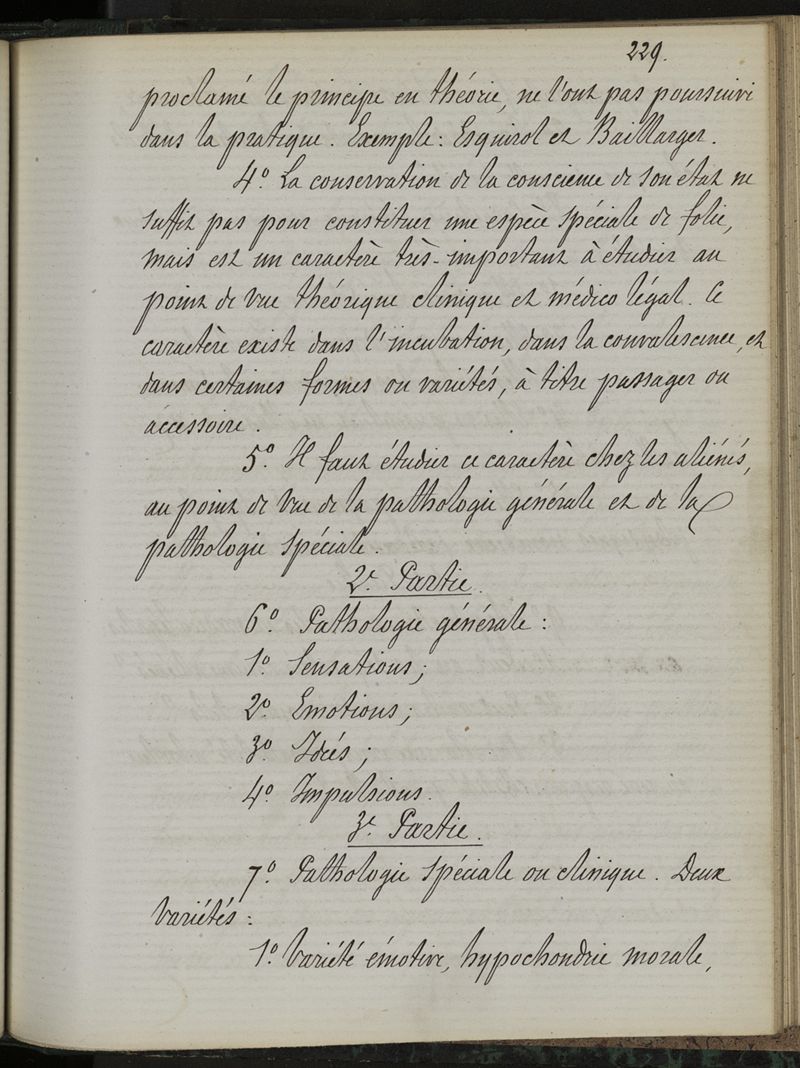 229.
proclamé le principe en théorie, ne l'ont pas poursuivi
dans la pratique. Exemple: Esquirol et Baillarger.
4º. La conservation de la conscience de son état ne
suffit pas pour constituer une espèce spéciale de folie,
mais est un caractère très-important à étudier au
point de vue théorique clinique et médico légal. Ce
caractère existe dans l'incubation, dans la convalescence, et
dans certaines formes ou variétés, à titre passager ou
accessoire.
5º. Il faut étudier ce caractère chez les aliénés,
au point de vue de la pathologie générale et de la
pathologie spéciale.
2e. Partie.
6º. Pathologie générale:
1º. Sensations;
2º. Emotions;
3º. Idées;
4º. Impulsions.
3e. Partie.
7º. Pathologie spéciale ou clinique. Deux
variétés:
1º. Variété émotive, hypochondrie morale,